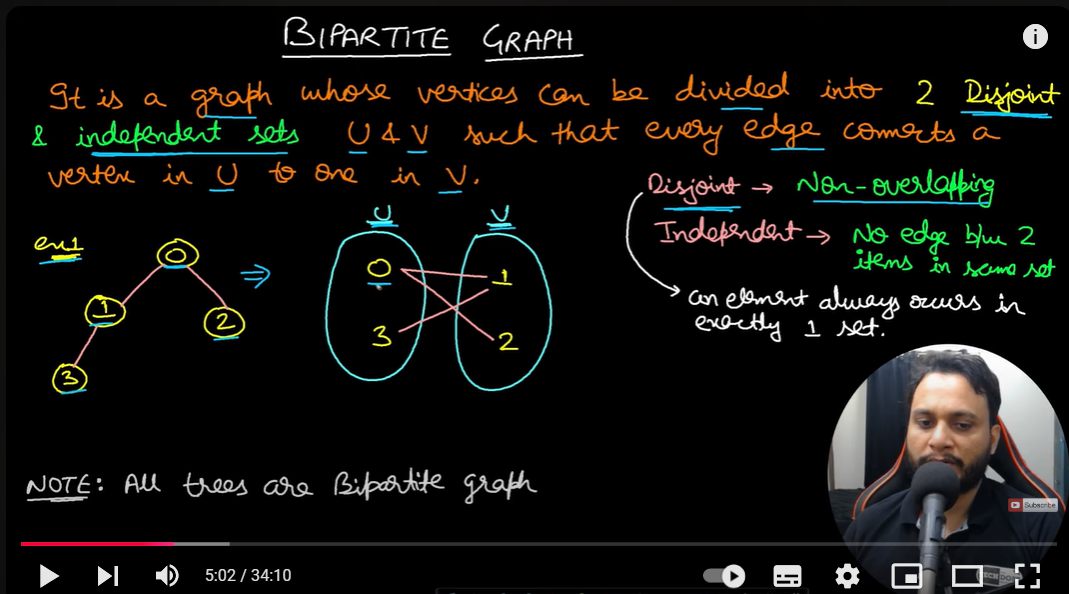 BIPARTITE GRAPH
It is a graph whose vertices can be divided into 2 Disjoint
& independent sets U & V such that every edge connects a
vertex in U to one in V.
Disjoint → Non-overlapping
Independent → No edge b/w 2
items in same set
an element always occurs in
exactly 1 set.
ex1
0
1
2
3
⇒
U V
0 1
3 2
NOTE: All trees are Bipartite graph
Subscribe
5:02 / 34:10